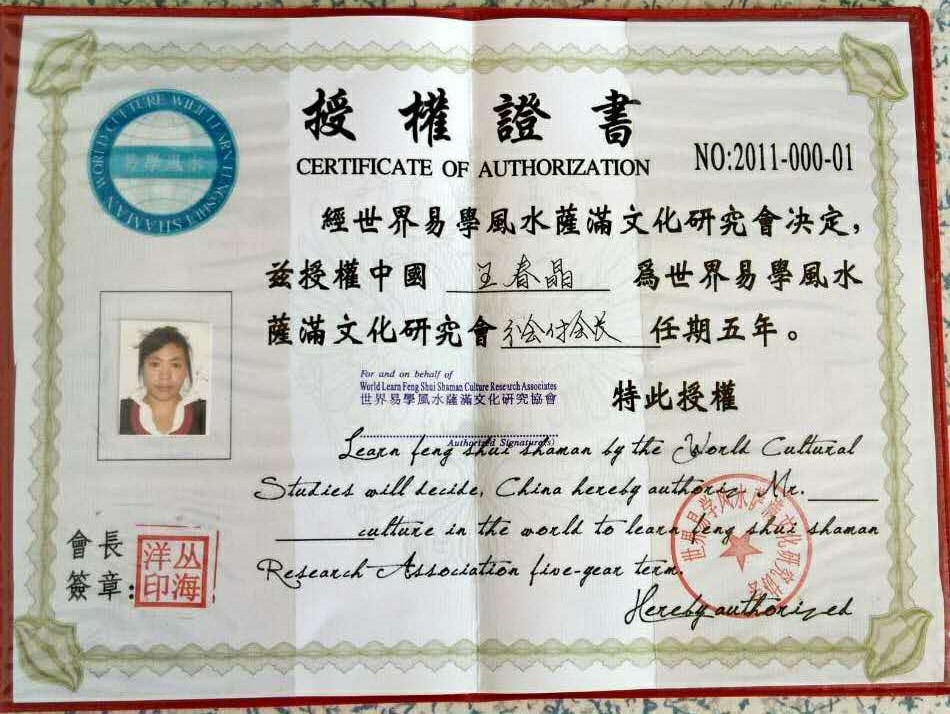 授權證書
CERTIFICATE OF AUTHORIZATION
NO:2011-000-01
易學風水
經世界易學風水薩滿文化研究會決定,
兹授權中國 王春晶 爲世界易學風水
薩滿文化研究會 付会长 任期五年。
For and on behalf of
World Learn Feng Shui Shaman Culture Research Associates
世界易學風水薩滿文化研究協會
特此授權
Authorized Signature(s)
Learn feng shui shaman by the World Cultural
Studies will decide, China hereby authoriz Mr.
culture in the world to learn feng shui shaman
Research Association five-year term.
Hereby authorized
會長
簽章:
丛海
洋印